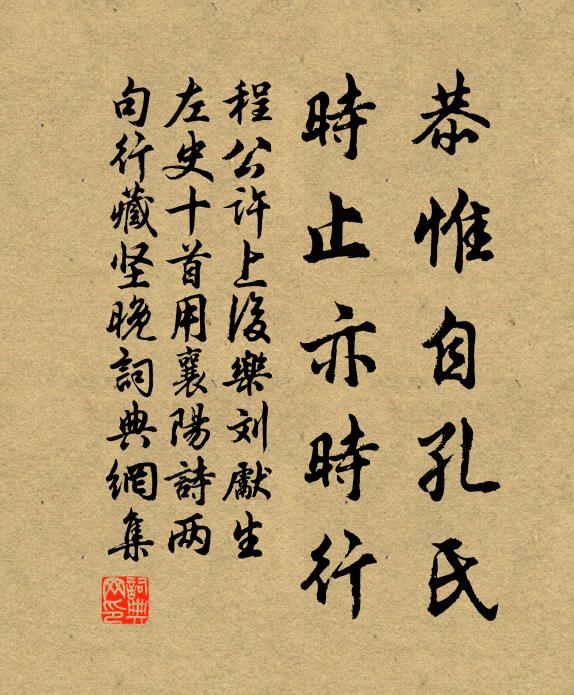 恭惟自孔氏
時止亦時行
程公許上後樂刘獻生
左史十首用襄陽詩两
句行藏坚晚詞典網集
詞典网印